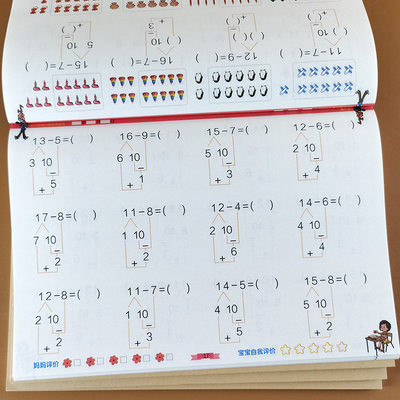 15-7=( ) 16-7=( ) 12-9=( ) 11-7=( )
13-5=( ) 16-9=( ) 15-7=( ) 12-6=( )
3 10 6 10 5 10 2 10
- - - -
5 1 3 4
+ + + +
17-8=( ) 11-8=( ) 12-4=( ) 14-6=( )
7 10 1 10 2 10 4 10
- - - -
2 2 6 4
+ + + +
12-8=( ) 11-7=( ) 14-5=( ) 15-8=( )
2 10 1 10 4 10 5 10
- - - -
2 3 5 2
+ + + +
妈妈评价 宝宝自我评价